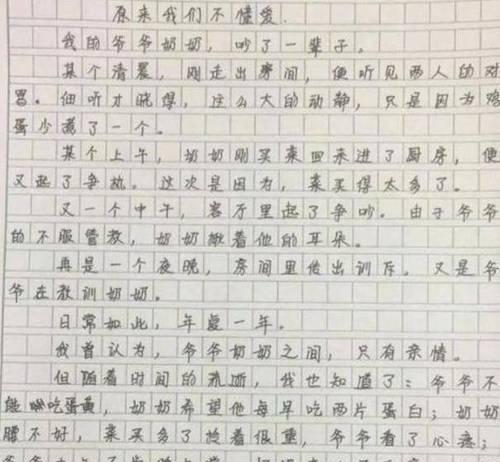 原来我们不懂爱.
我的爷爷奶奶，吵了一辈子。
某个清晨，刚走出房间，便听见两人的对
骂。细听才晓得，这么大的动静，只是因为鸡
蛋少煮了一个。
某个上午，奶奶刚买菜回来进了厨房，便
又起了争执。这次是因为，菜买得太多了。
又一个中午，客厅里起了争吵。由于爷爷
的不服管教，奶奶揪着他的耳朵。
再是一个夜晚，房间里传出训斥。又是爷
爷在教训奶奶。
日常如此，年复一年。
我曾认为，爷爷奶奶之间，只有亲情。
但随着时间的流逝，我也知道了：爷爷不
能吃蛋黄，奶奶希望他每早吃两片蛋白；奶奶
腰不好，菜买多了拎着很重，爷爷看了心疼；